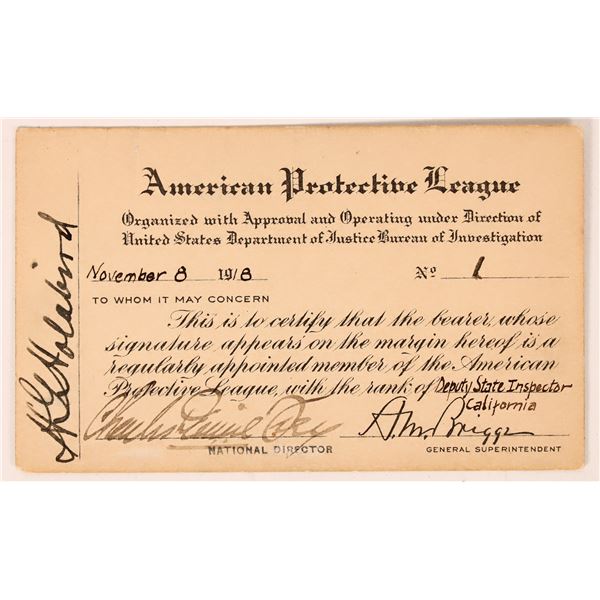 American Protective League
Organized with Approval and Operating under Direction of
United States Department of Justice Bureau of Investigation
November 8 1918 Nº 1
TO WHOM IT MAY CONCERN
This is to certify that the bearer, whose
signature appears on the margin hereof is a
regularly appointed member of the American
Protective League, with the rank of Deputy State Inspector
California
Charles Daniel Frey A.M. Briggs
NATIONAL DIRECTOR GENERAL SUPERINTENDENT
Holabird